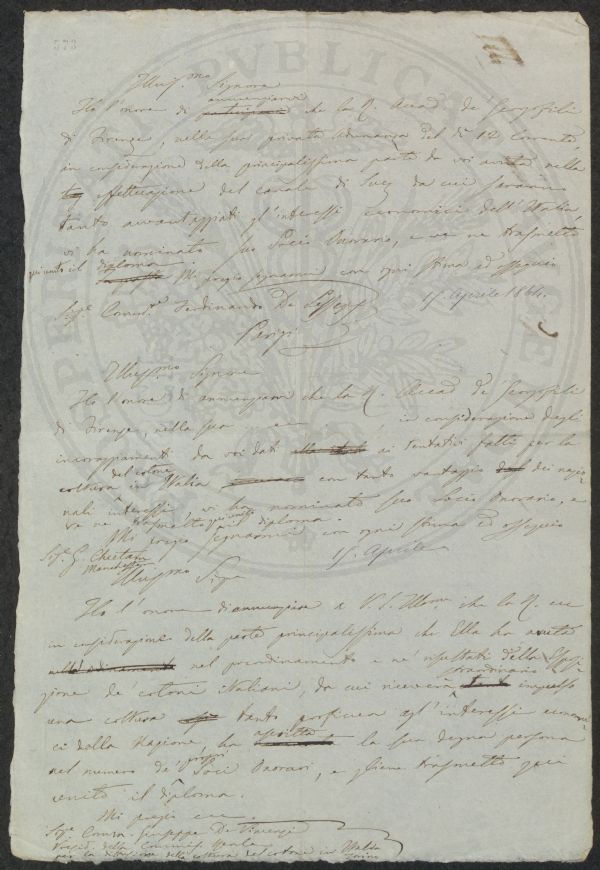 573
Illus.mo Signore
annunziarvi
Ho l'onore di partecipare che la R. Accad. de' Georgofili
di Firenze, nella sua privata adunanza del dì 12 corrente,
in considerazione della principalissima parte da voi avuta nella
effettuazione del canale di Suez da cui saranno
tanto avvantaggiati gl'interessi economici dell'Italia,
vi ha nominato suo Socio Onorario, e ve ne trasmetto
qui unito il diploma. Mi pregio segnarmi con ogni stima ed ossequio
Sig.r Comm.re Ferdinando De Lesseps 15. Aprile 1864.
Parigi
Illus.mo Signore
Ho l'onore di annunziarvi che la R. Accad. de' Georgofili
di Firenze, nella sua in considerazione degli
incoraggiamenti da voi dati ai tentativi fatti per la
del cotone
coltura in Italia, con tanto vantaggio dei nazio
nali interessi, vi ha nominato suo Socio Onorario, e
ve ne trasmetto qui unito il diploma.
Mi pregio segnarmi con ogni stima ed ossequio
Sig.r G. Cheetam 15. Aprile
Manchester
Illus.mo Sig.re
Ho l'onore di annunziare a V. S. Illma. che la R.
in considerazione della parte principalissima che Ella ha avuta
nel prendinamento e ne' resultati della Esposi
straordinario
zione de' cotoni italiani, da cui riceverà impulso
una coltura tanto proficua agl'interessi economi
ci della Nazione, ha ascritto la sua degna persona
nel numero de' propri Soci Onorari, e gliene trasmetto qui
unito il diploma.
Mi pregio
Sig.re Comm. Giuseppe De Vincenzi
Presid. della Commiss. Reale
per la della coltura del cotone in Italia
Torino